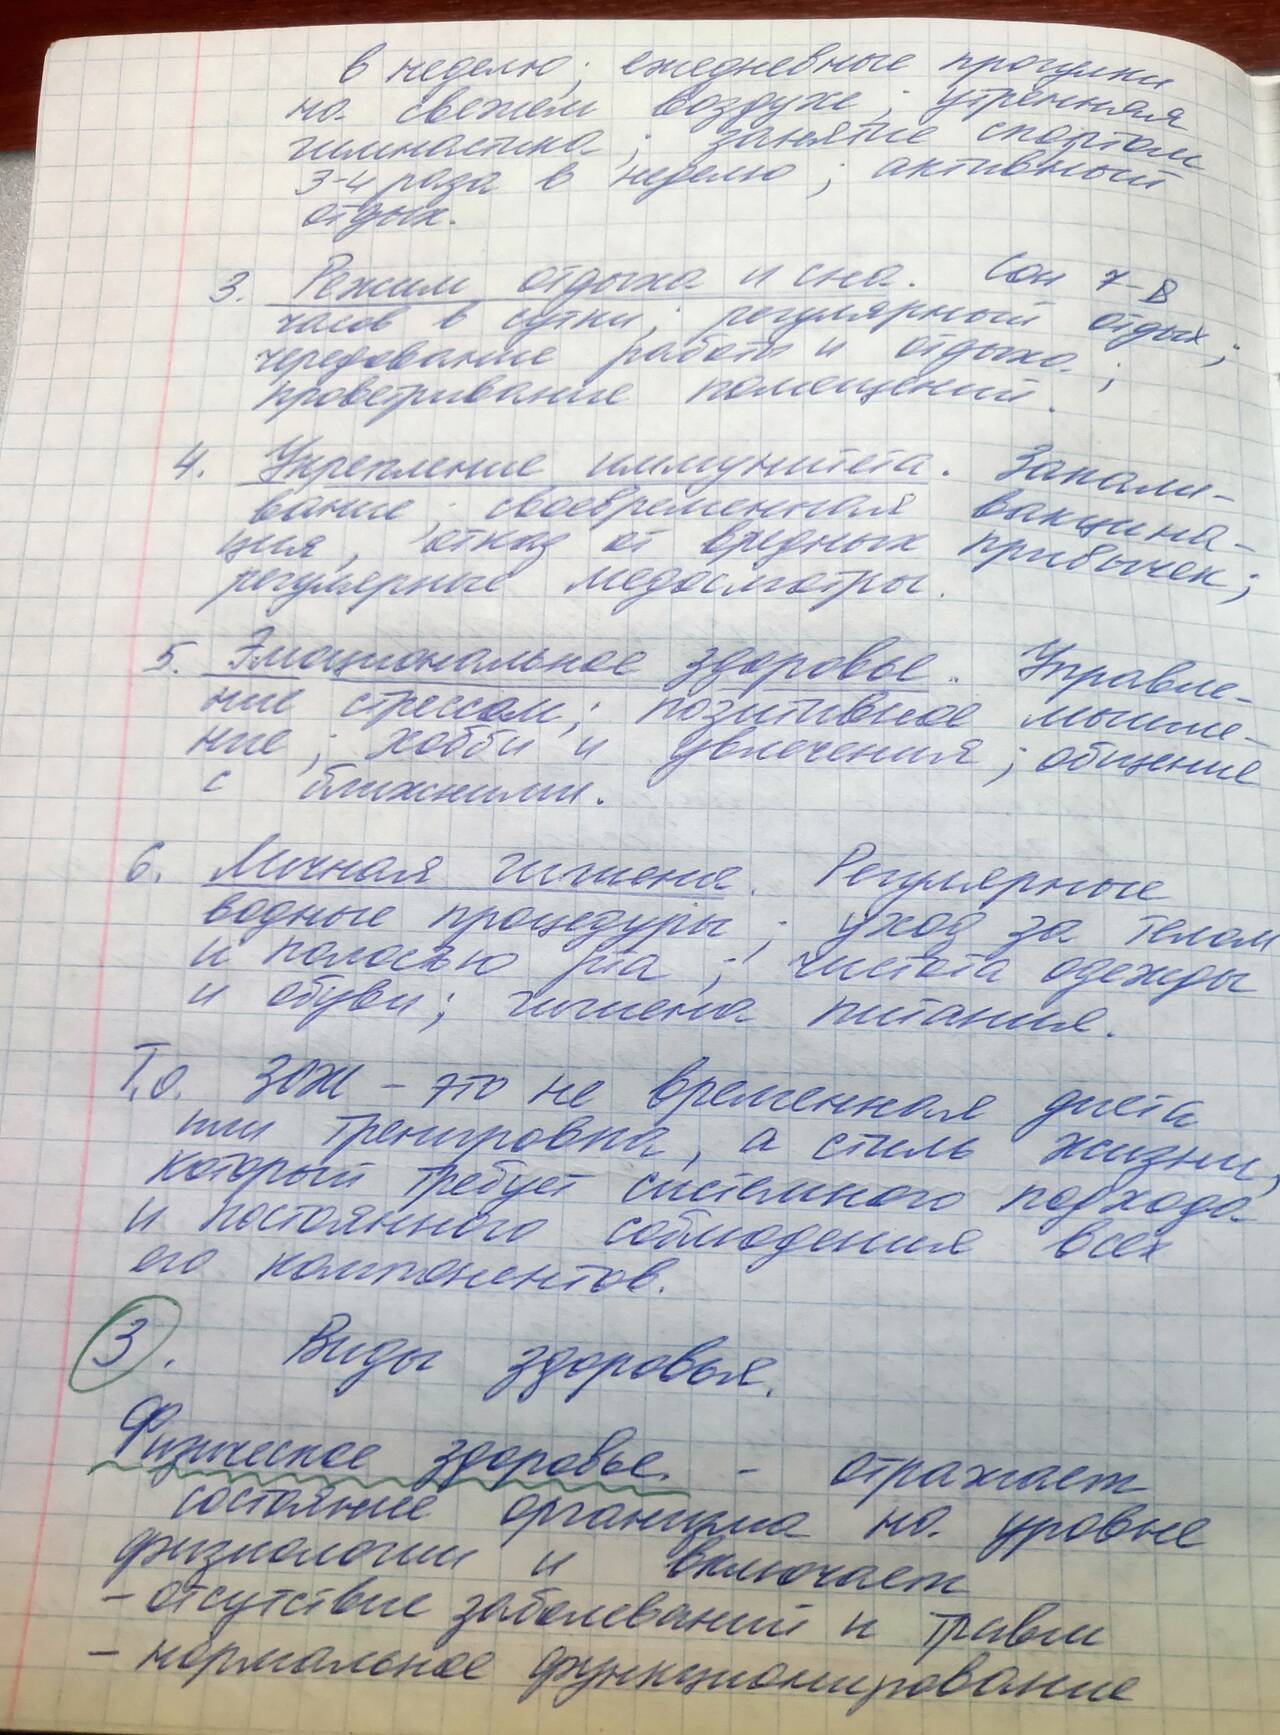 в неделю; ежедневные прогулки
на свежем воздухе; утренняя
гимнастика; занятие спортом
3-4 раза в неделю; активный
отдых.
3. Режим отдыха и сна. Сон 7-8
часов в сутки; регулярный отдых;
чередование работы и отдыха;
проветривание помещений.
4. Укрепление иммунитета. Закали-
вание; своевременная вакцина-
ция, отказ от вредных привычек;
регулярные медосмотры.
5. Эмоциональное здоровье. Управле-
ние стрессом; позитивное мышле-
ние; хобби и увлечения; общение
с ближними.
6. Личная гигиена. Регулярные
водные процедуры; уход за телом
и полостью рта; чистота одежды
и обуви; гигиена питания.
Т.о. ЗОЖ - это не временная диета
или тренировка, а стиль жизни,
который требует системного подхода
и постоянного соблюдения всех
его компонентов.
3. Виды здоровья.
Физическое здоровье. - отражает
состояние организма на уровне
физиологии и включает
- отсутствие заболеваний и травм
- нормальное функционирование